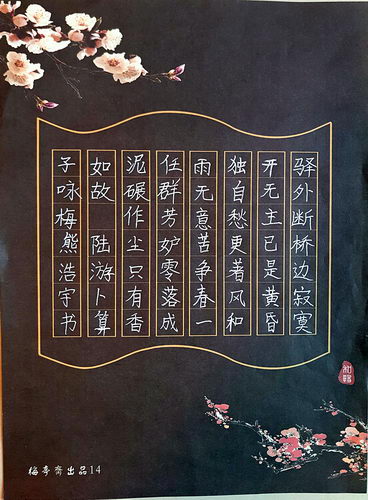 驿外断桥边寂寞
开无主已是黄昏
独自愁更著风和
雨无意苦争春一
任群芳妒零落成
泥碾作尘只有香
如故 陆游卜算
子咏梅熊浩宇书
出品14